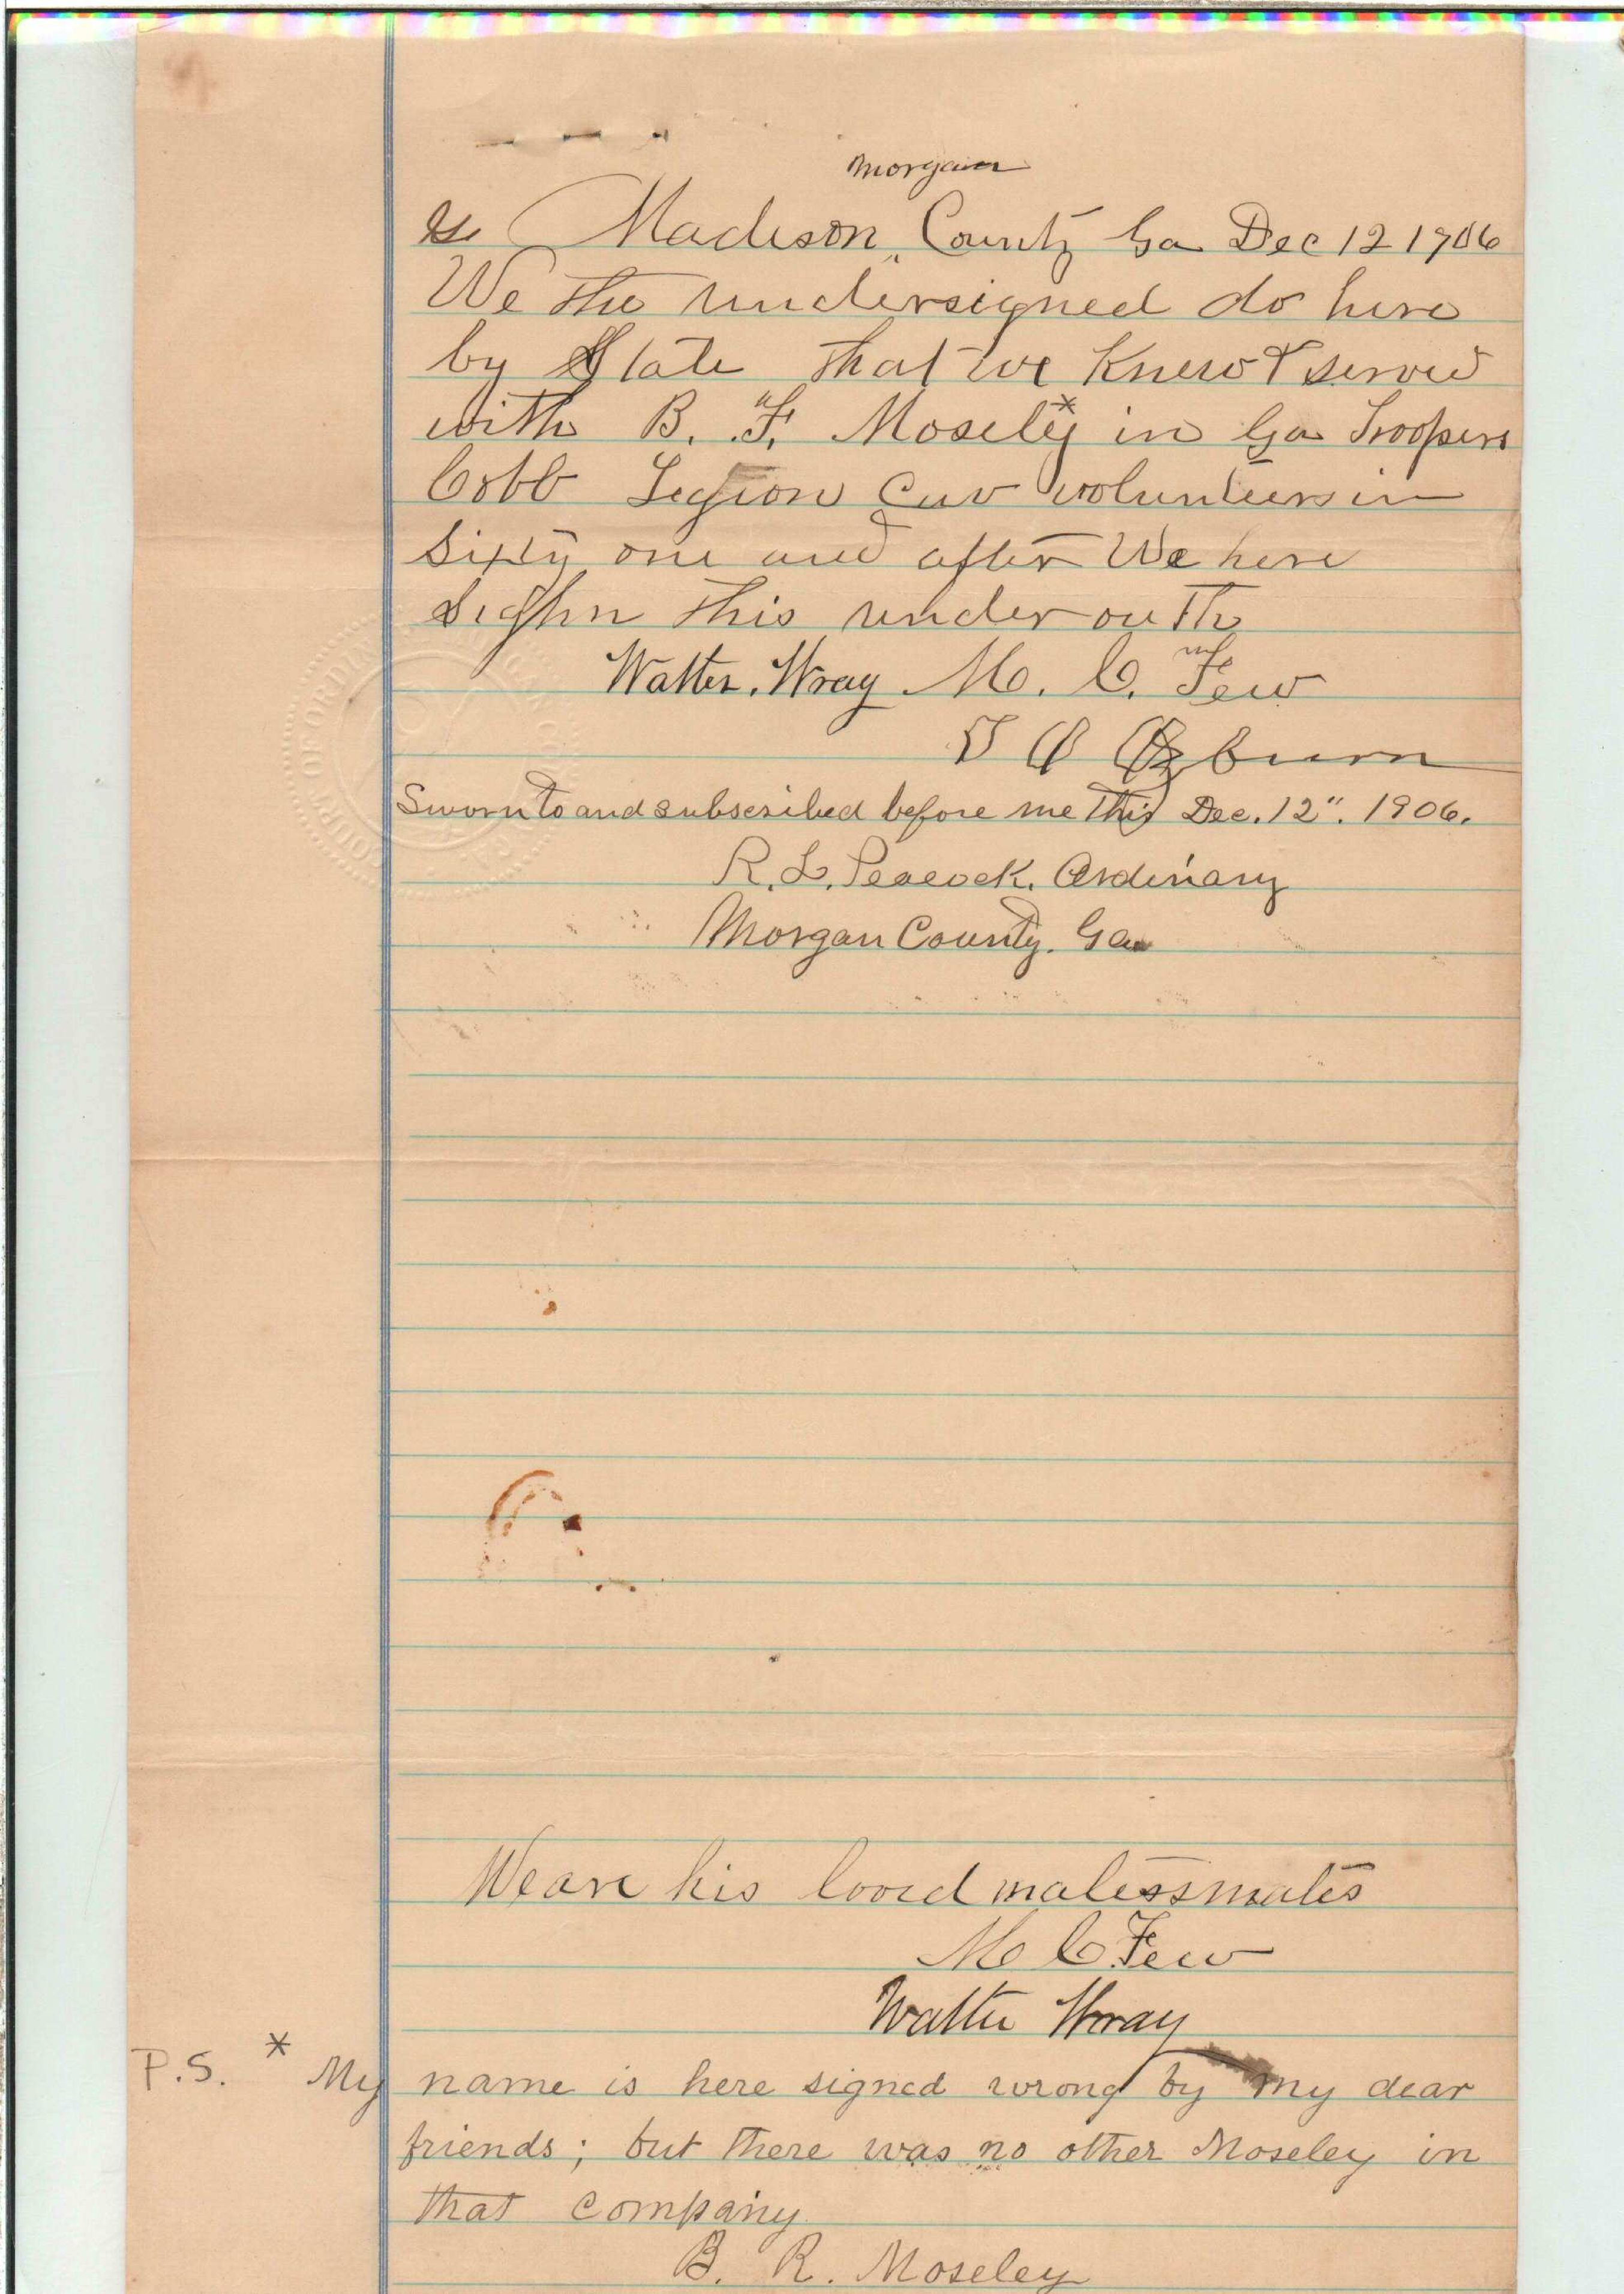 Morgan
Madison, County Ga Dec 12 1906
We the undersigned do here
by State that we Knew & served
with B. F. Mosely* in Ga Troopers
Cobb Legion Cav volunteers in
Sixty one and after We here
sighn this under outh
Walter. Wray M. C. Few
Ozburn
Sworn to and subscribed before me this Dec. 12". 1906.
R. L. Peacock. Ordinary
Morgan County. Ga
We are his loved matessmates
M C. Few
Walter Wray
P.S. * My name is here signed wrong by my dear
friends; but there was no other Moseley in
that company
B. R. Moseley